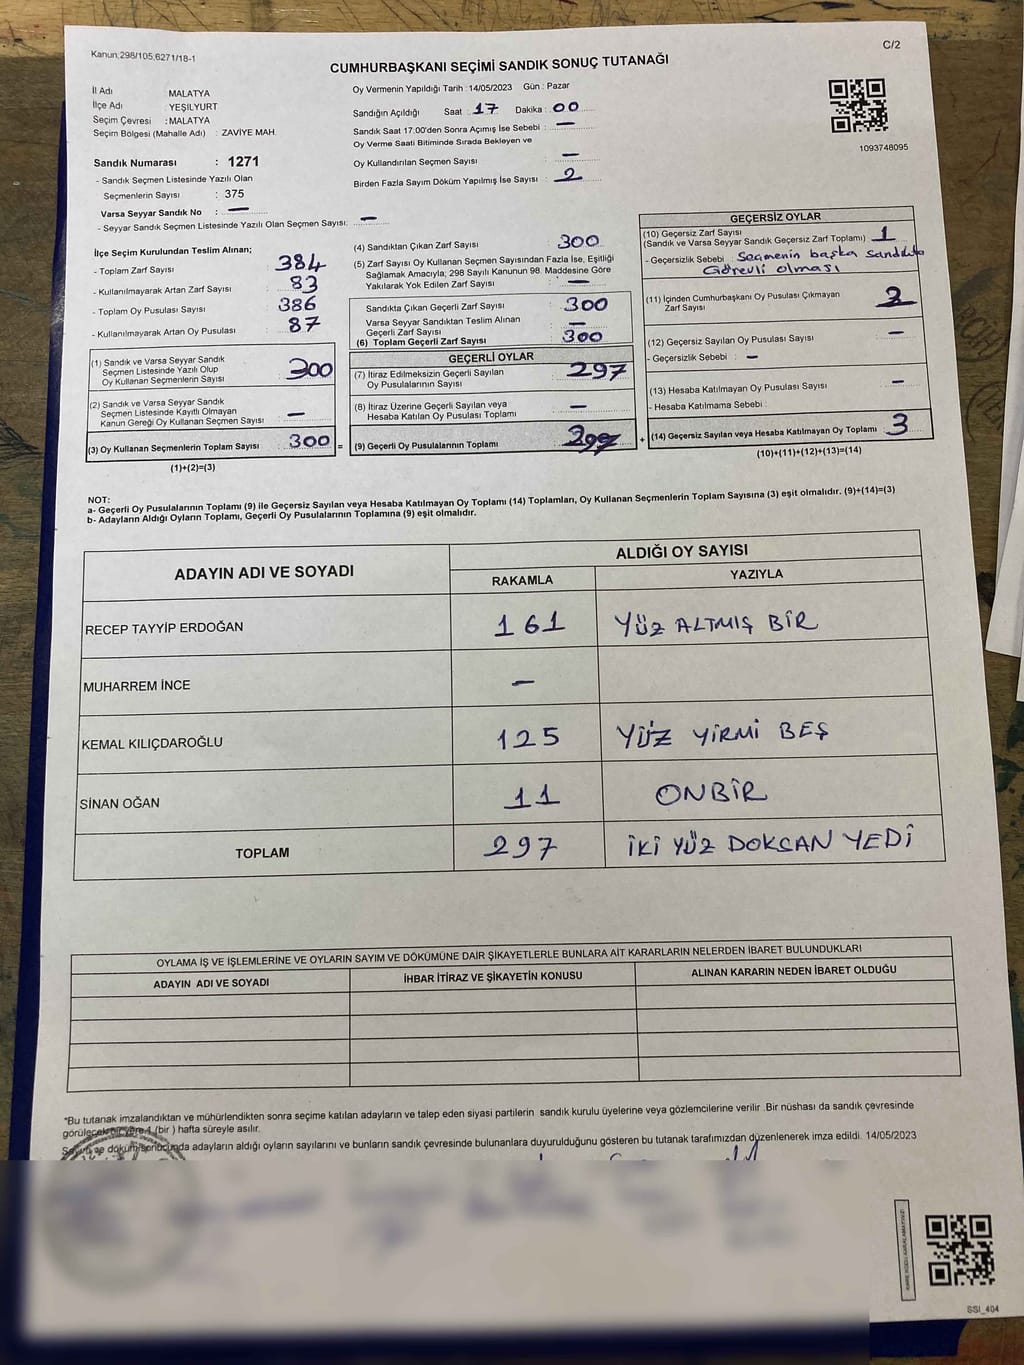 Kanun;298/105,6271/18-1
C/2
CUMHURBAŞKANI SEÇİMİ SANDIK SONUÇ TUTANAĞI
İl Adı MALATYA
İlçe Adı : YEŞİLYURT
Seçim Çevresi : MALATYA
Seçim Bölgesi (Mahalle Adı) : ZAVİYE MAH.
Sandık Numarası : 1271
- Sandık Seçmen Listesinde Yazılı Olan
Seçmenlerin Sayısı : 375
Varsa Seyyar Sandık No : —
- Seyyar Sandık Seçmen Listesinde Yazılı Olan Seçmen Sayısı: —
Oy Vermenin Yapıldığı Tarih : 14/05/2023 Gün : Pazar
Sandığın Açıldığı Saat : 17 Dakika : 00
Sandık Saat 17.00'den Sonra Açımış İse Sebebi : —
Oy Verme Saati Bitiminde Sırada Bekleyen ve
Oy Kullandırılan Seçmen Sayısı : —
Birden Fazla Sayım Döküm Yapılmış İse Sayısı : 2
1093748095
İlçe Seçim Kurulundan Teslim Alınan;
- Toplam Zarf Sayısı : 384
- Kullanılmayarak Artan Zarf Sayısı : 83
- Toplam Oy Pusulası : 386
- Kullanılmayarak Artan Oy Pusulası : 87
(1) Sandık ve Varsa Seyyar Sandık
Seçmen Listesinde Yazılı Olup
Oy Kullanan Seçmenlerin Sayısı : 300
(2) Sandık ve Varsa Seyyar Sandık
Seçmen Listesinde Kayıtlı Olmayan
Kanun Gereği Oy Kullanan Seçmen Sayısı : —
(3) Oy Kullanan Seçmenlerin Toplam Sayısı : 300 =
(1)+(2)=(3)
(4) Sandıktan Çıkan Zarf Sayısı : 300
(5) Zarf Sayısı Oy Kullanan Seçmen Sayısından Fazla İse, Eşitliği
Sağlamak Amacıyla; 298 Sayılı Kanunun 98. Maddesine Göre
Yakılarak Yok Edilen Zarf Sayısı : —
Sandıkta Çıkan Geçerli Zarf Sayısı : 300
Varsa Seyyar Sandıktan Teslim Alınan
Geçerli Zarf Sayısı : —
(6) Toplam Geçerli Zarf Sayısı : 300
GEÇERLİ OYLAR
(7) İtiraz Edilmeksizin Geçerli Sayılan
Oy Pusulalarının Sayısı : 297
(8) İtiraz Üzerine Geçerli Sayılan veya
Hesaba Katılan Oy Pusulası Toplamı : —
(9) Geçerli Oy Pusulalarının Toplamı : 297 +
GEÇERSİZ OYLAR
(10) Geçersiz Zarf Sayısı
(Sandık ve Varsa Seyyar Sandık Geçersiz Zarf Toplamı) : 1
- Geçersizlik Sebebi : Seçmenin başka sandıkta
Görevli olması
(11) İçinden Cumhurbaşkanı Oy Pusulası Çıkmayan
Zarf Sayısı : 2
(12) Geçersiz Sayılan Oy Pusulası Sayısı : —
- Geçersizlik Sebebi : —
(13) Hesaba Katılmayan Oy Pusulası Sayısı : —
- Hesaba Katılmama Sebebi :
(14) Geçersiz Sayılan veya Hesaba Katılmayan Oy Toplamı : 3
(10)+(11)+(12)+(13)=(14)
NOT:
a- Geçerli Oy Pusulalarının Toplamı (9) ile Geçersiz Sayılan veya Hesaba Katılmayan Oy Toplamı (14) Toplamları, Oy Kullanan Seçmenlerin Toplam Sayısına (3) eşit olmalıdır. (9)+(14)=(3)
b- Adayların Aldığı Oyların Toplamı, Geçerli Oy Pusulalarının Toplamına (9) eşit olmalıdır.
ADAYIN ADI VE SOYADI ALDIĞI OY SAYISI
RAKAMLA YAZIYLA
RECEP TAYYİP ERDOĞAN 161 YÜZ ALTMIŞ BİR
MUHARREM İNCE —
KEMAL KILIÇDAROĞLU 125 YÜZ YİRMİ BEŞ
SİNAN OĞAN 11 ONBİR
TOPLAM 297 İKİ YÜZ DOKSAN YEDİ
OYLAMA İŞ VE İŞLEMLERİNE VE OYLARIN SAYIM VE DÖKÜMÜNE DAİR ŞİKAYETLERLE BUNLARA AİT KARARLARIN NELERDEN İBARET BULUNDUKLARI
ADAYIN ADI VE SOYADI İHBAR İTİRAZ VE ŞİKAYETİN KONUSU ALINAN KARARIN NEDEN İBARET OLDUĞU
*Bu tutanak imzalandıktan ve mühürlendikten sonra seçime katılan adayların ve talep eden siyasi partilerin sandık kurulu üyelerine veya gözlemcilerine verilir .Bir nüshası da sandık çevresinde
görülecek bir yere 1 (bir ) hafta süreyle asılır.
Sayım ve döküm sonucunda adayların aldığı oyların sayılarını ve bunların sandık çevresinde bulunanlara duyurulduğunu gösteren bu tutanak tarafımızdan düzenlenerek imza edildi. 14/05/2023
SSI_404